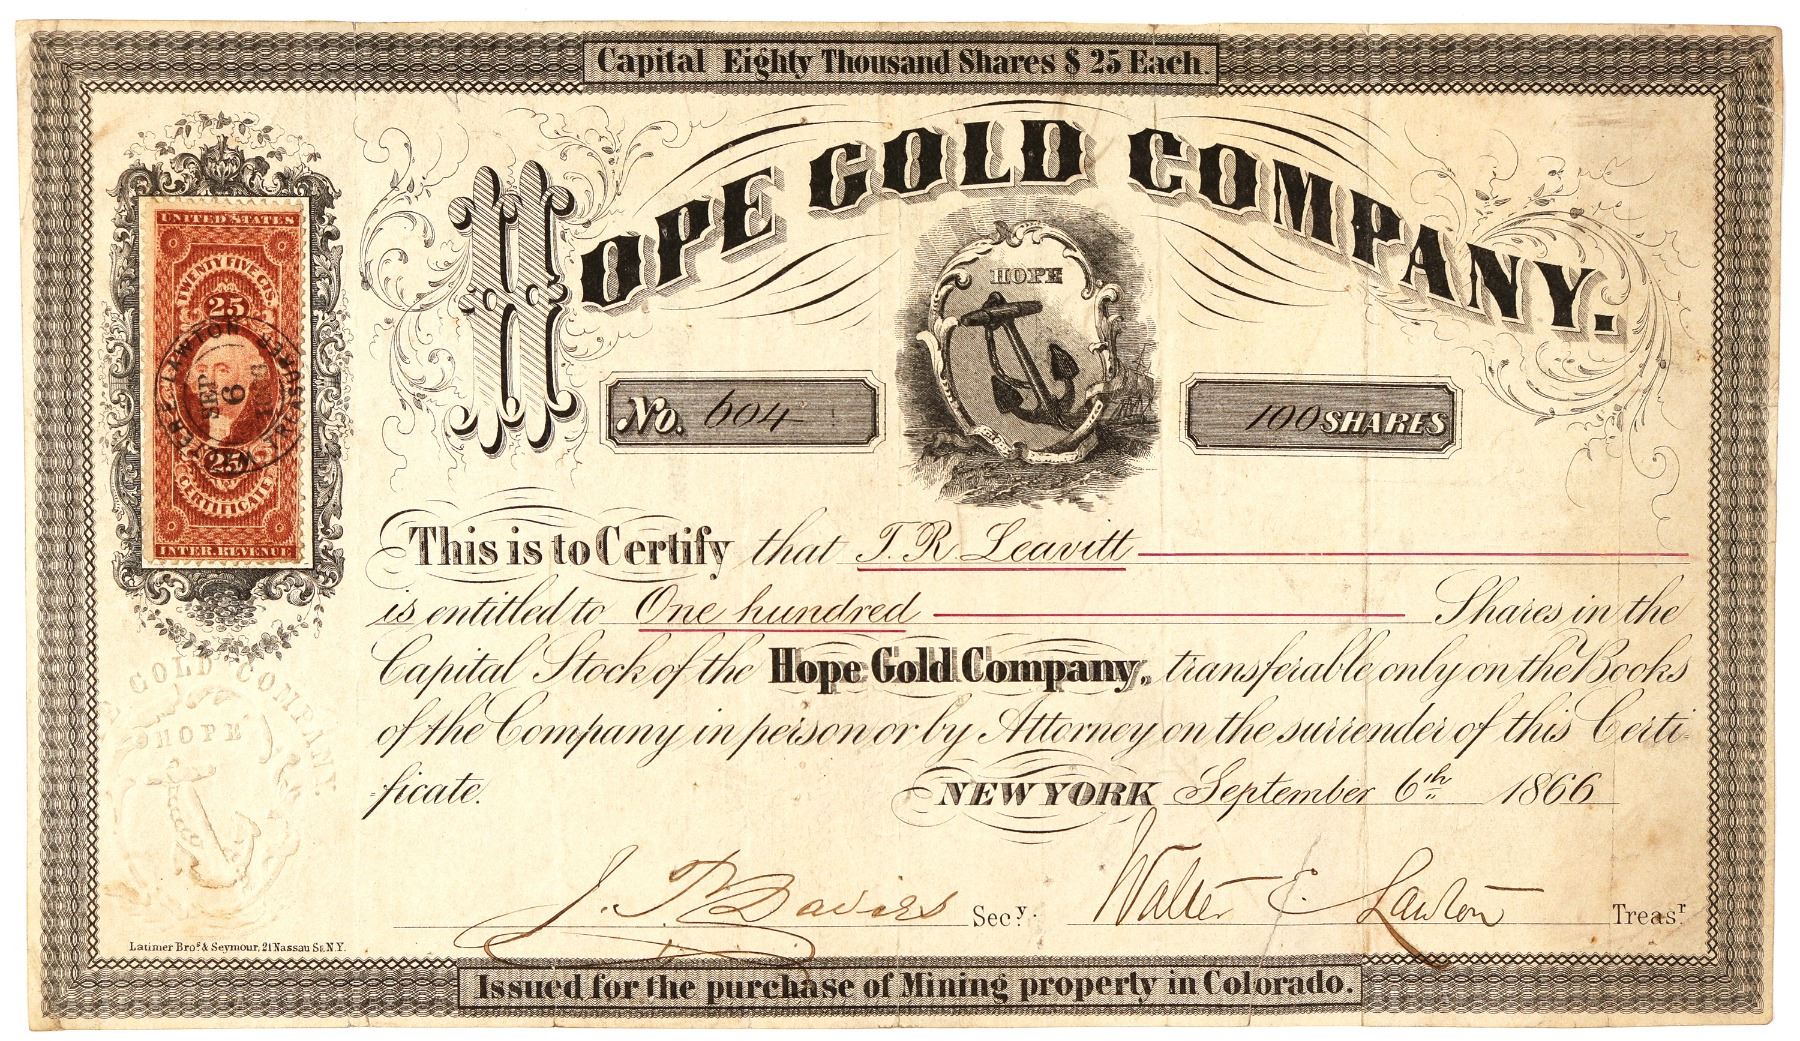 Capital Eighty Thousand Shares $ 25 Each.
HOPE GOLD COMPANY.
UNITED STATES
TWENTY FIVE CTS.
25
WALTER E. LAWTON
SEP
6
1866
TREASURER
25
CERTIFICATE
INTER. REVENUE
HOPE
No. 604
100 SHARES
This is to Certify that T. R. Leavitt
is entitled to One hundred Shares in the
Capital Stock of the Hope Gold Company, transferable only on the Books
of the Company in person or by Attorney on the surrender of this Certi-
ficate.
NEW YORK September 6th 1866
GOLD COMPANY.
HOPE
Secy.
Walter E. Lawton Treasr
Latimer Bros & Seymour, 21 Nassau St. N.Y.
Issued for the purchase of Mining property in Colorado.